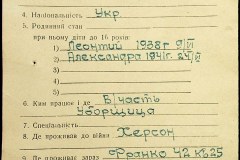 4. Національність Укр
5. Родинний стан
при ньому діти до 16 років:
1) Леонтий 1938 г 9/VI
2) Александра 1941 г. 24/VI
3)
4)
5)
6. Ким працює і де В/часть
Уборщица
7. Спеціальність
8. Де проживав до війни Херсон
9. Де проживає зараз Франко 42 кв 25